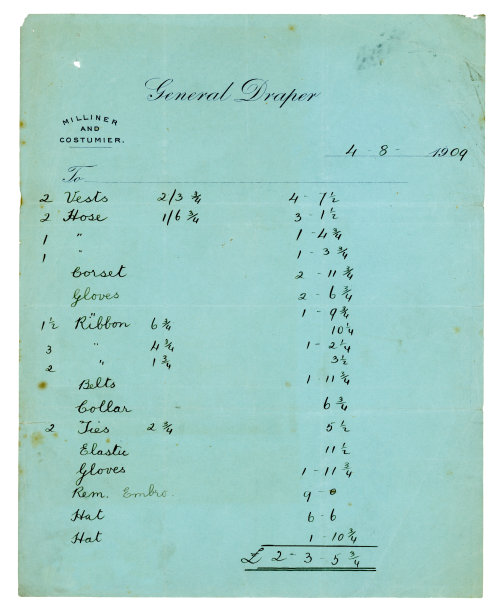 General Draper
MILLINER
AND
COSTUMIER.
4 - 8 - 1909
To
2 Vests 2/3 ¾ 4 - 7½
2 Hose 1/6 ¾ 3 - 1½
1 " 1 - 4¾
1 " 1 - 3¾
Corset 2 - 11¾
Gloves 2 - 6¾
" 1 - 9¾
1½ Ribbon 6¾ 10¼
3 " 4¾ 1 - 2¼
2 " 1¾ 3½
Belts 1 - 11¾
Collar 6¾
2 Ties 2¾ 5½
Elastic 11½
Gloves 1 - 11¾
Rem. Embro. 9 - 0
Hat 6 - 6
Hat 1 - 10¾
£ 2 - 3 - 5¾